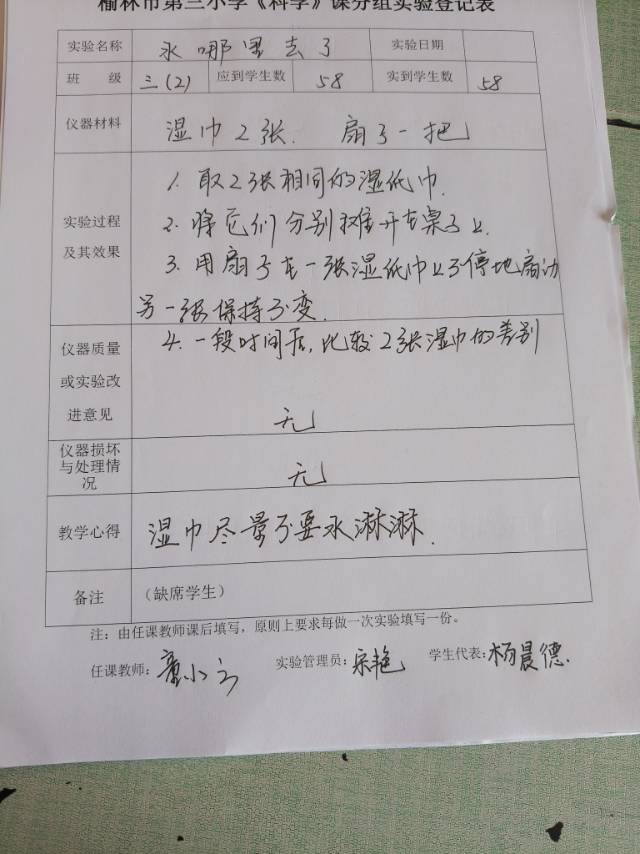 榆林市第三小学《科学》课分组实验登记表
实验名称 水哪里去了 实验日期
班 级 三(2) 应到学生数 58 实到学生数 58
仪器材料 湿巾2张. 扇子一把
1. 取2张相同的湿纸巾.
实验过程 2. 将它们分别摊开在桌子上.
及其效果 3. 用扇子在一张湿纸巾上不停地扇动
另一张保持不变.
仪器质量 4. 一段时间后,比较2张湿巾的差别
或实验改
进意见 无
仪器损坏
与处理情 无
况
教学心得 湿巾尽量不要水淋淋.
备注 (缺席学生)
注:由任课教师课后填写,原则上要求每做一次实验填写一份。
任课教师: 实验管理员:宋艳 学生代表:杨晨德.